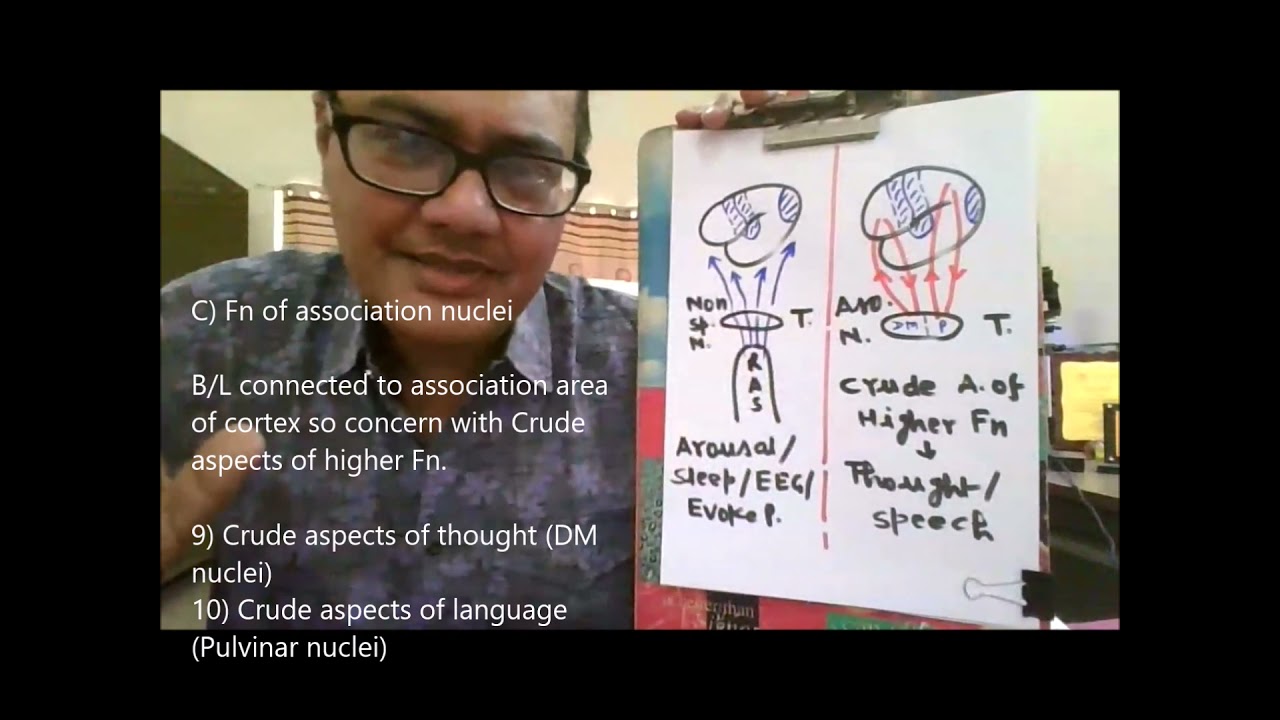 C) Fn of association nuclei
B/L connected to association area
of cortex so concern with Crude
aspects of higher Fn.
9) Crude aspects of thought (DM
nuclei)
10) Crude aspects of language
(Pulvinar nuclei)
Non
sp.
N.
T.
R
A
S
Arousal/
Sleep/EEG/
Evoke P.
Aso.
N.
DM P
T.
Crude A. of
Higher Fn
↓
Thought/
speech